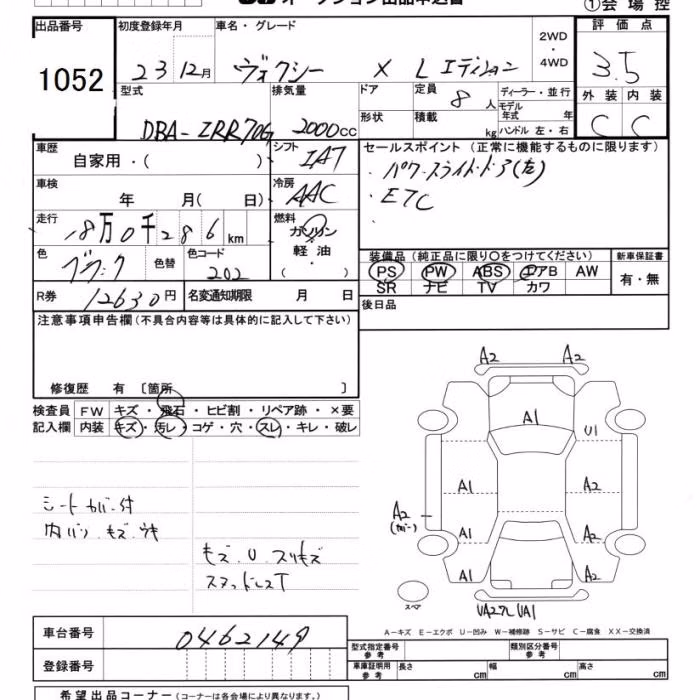 ①会場控
出品番号
1052
初度登録年月
23 12月
車名・グレード
ヴォクシー X Lエディション
2WD
・
4WD
評価点
3.5
外装 内装
C C
型式
DBA-ZRR70G
排気量
2000cc
ドア
形状
定員
8人
積載
kg
ディーラー・並行
モデル年式 年
ハンドル 左・右
車歴
自家用・( )
シフト
IAT
車検
年 月( 日)
冷房
AAC
走行
18万0千286km
燃料
ガソリン
軽油
・
( )
色
ブラック
色替
色コード
202
R券
12630円
名変通知期限 月 日
セールスポイント(正常に機能するものに限ります)
・パワースライドドア(左)
・ETC
・
装備品(純正品に限り○をつけてください)
PS PW ABS エアB AW
SR ナビ TV カワ
新車保証書
有・無
後日品
注意事項申告欄(不具合内容等は具体的に記入して下さい)
修復歴 有 〔箇所 〕
検査員
記入欄
FW キズ・飛石・ヒビ割・リペア跡・×要
内装 キズ・汚レ・コゲ・穴・スレ・キレ・破レ
シートカバー付
内バン キズ ウキ
キズ U スリキズ
スタッドレスT
A2 A2
A1 U1
A1 A2
A2 A1 A2
(カバー)
A1 A2
スペア
UA27L UA1
A-キズ E-エクボ U-凹み W-補修跡 S-サビ C-腐食 XX-交換済
車台番号
0462149
登録番号
型式指定番号
参考
類別区分番号
参考
車庫証明用
参考
長さ cm 幅 cm 高さ cm
希望出品コーナー(コーナーは各会場により異なります。)